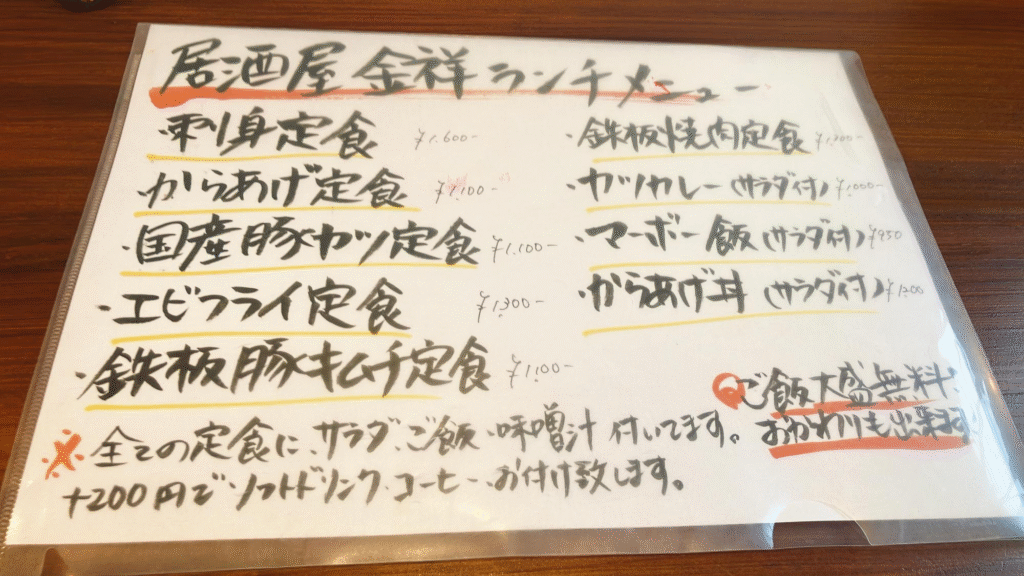 居酒屋 金祥 ランチメニュー
・刺身定食 ¥1,600-
・からあげ定食 ¥1,100-
・国産豚カツ定食 ¥1,100-
・エビフライ定食 ¥1,300-
・鉄板豚キムチ定食 ¥1,100-
・鉄板焼肉定食
・カツカレー(サラダ付) ¥1,000-
・マーボー飯(サラダ付) ¥950
・からあげ丼(サラダ付)
ご飯大盛無料!
おかわりも出来ます!
※全ての定食に、サラダ、ご飯、味噌汁 付いてます。
+200円でソフトドリンク、コーヒーお付け致します。